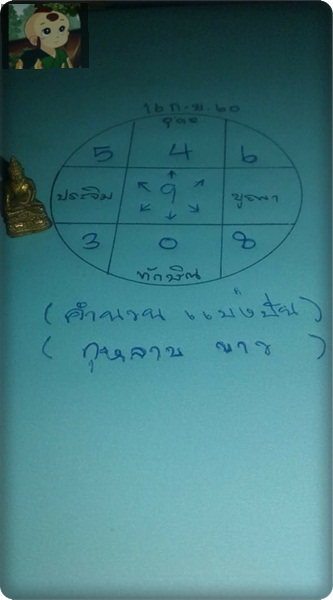 16 ก.ย. 60
อุดร
5 4 6
ประจิม 9 บูรพา
3 0 8
ทักษิณ
(คำนวน แบ่งปัน)
(กุหลาบ ขาว)